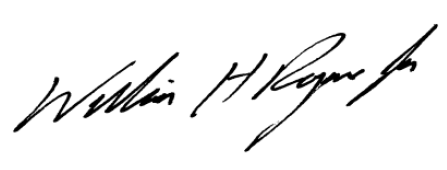 William H Rogers Jr